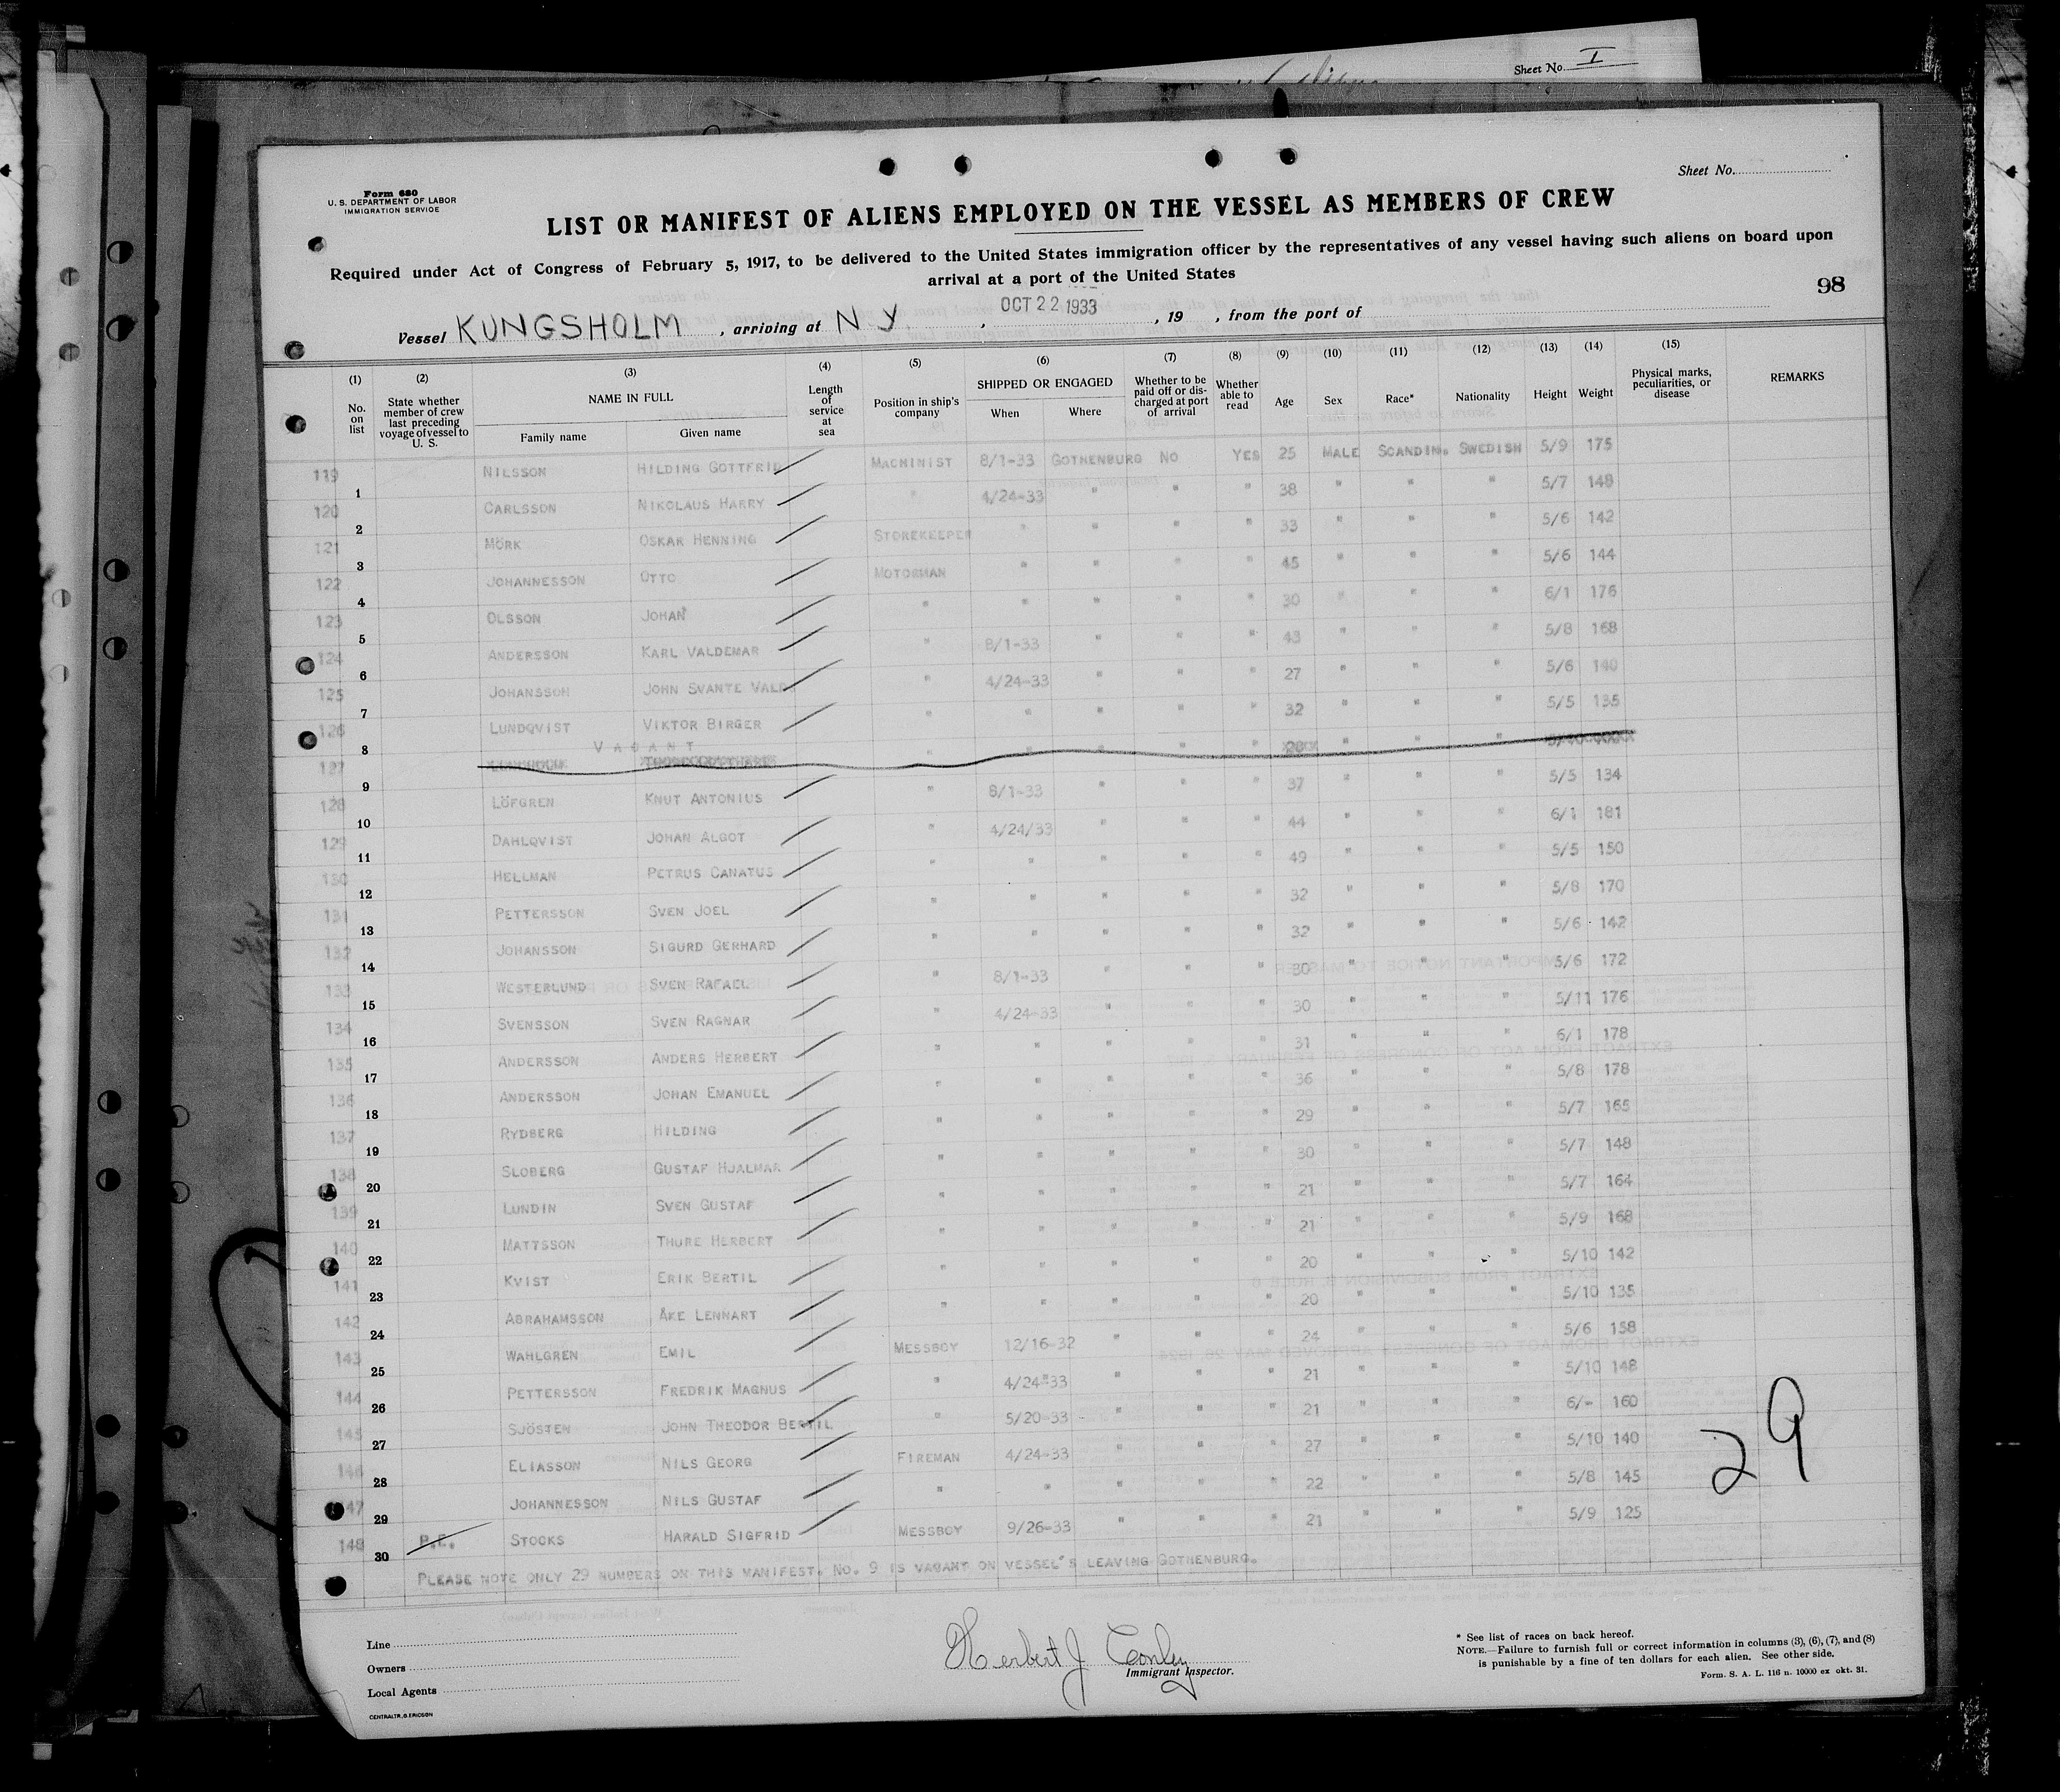 Sheet No. I
Sheet No.
Form 680
U. S. DEPARTMENT OF LABOR
IMMIGRATION SERVICE
LIST OR MANIFEST OF ALIENS EMPLOYED ON THE VESSEL AS MEMBERS OF CREW
Required under Act of Congress of February 5, 1917, to be delivered to the United States immigration officer by the representatives of any vessel having such aliens on board upon
arrival at a port of the United States
98
Vessel KUNGSHOLM, arriving at N Y, OCT 22 1933, 19 , from the port of
(1) No. on list (2) State whether member of crew last preceding voyage of vessel to U. S. (3) NAME IN FULL Family name Given name (4) Length of service at sea (5) Position in ship's company (6) SHIPPED OR ENGAGED When Where (7) Whether to be paid off or discharged at port of arrival (8) Whether able to read (9) Age (10) Sex (11) Race* (12) Nationality (13) Height (14) Weight (15) Physical marks, peculiarities, or disease REMARKS
119 1 NILSSON HILDING GOTTFRID MACHINIST 8/1-33 GOTHENBURG NO YES 25 MALE SCANDIN. SWEDISH 5/9 175
120 2 CARLSSON NIKOLAUS HARRY " 4/24-33 " " " 38 " " " 5/7 148
121 3 MÖRK OSKAR HENNING STOREKEEPER " " " " 33 " " " 5/6 142
122 4 JOHANNESSON OTTO MOTORMAN " " " " 45 " " " 5/6 144
123 5 OLSSON JOHAN " " " " " 30 " " " 6/1 176
124 6 ANDERSSON KARL VALDEMAR " 8/1-33 " " " 43 " " " 5/8 168
125 7 JOHANSSON JOHN SVANTE VALD. " 4/24-33 " " " 27 " " " 5/6 140
126 8 LUNDQVIST VIKTOR BIRGER " " " " " 32 " " " 5/5 135
127 9 VACANT " " " " " " "
128 10 LÖFGREN KNUT ANTONIUS " 8/1-33 " " " 37 " " " 5/5 134
129 11 DAHLQVIST JOHAN ALGOT " 4/24/33 " " " 44 " " " 6/1 181
130 12 HELLMAN PETRUS CANATUS " " " " " 49 " " " 5/5 150
131 13 PETTERSSON SVEN JOEL " " " " " 32 " " " 5/8 170
132 14 JOHANSSON SIGURD GERHARD " " " " " 32 " " " 5/6 142
133 15 WESTERLUND SVEN RAFAEL " 8/1-33 " " " 30 " " " 5/6 172
134 16 SVENSSON SVEN RAGNAR " 4/24-33 " " " 30 " " " 5/11 176
135 17 ANDERSSON ANDERS HERBERT " " " " " 31 " " " 6/1 178
136 18 ANDERSSON JOHAN EMANUEL " " " " " 36 " " " 5/8 178
137 19 RYDBERG HILDING " " " " " 29 " " " 5/7 165
138 20 SLOBERG GUSTAF HJALMAR " " " " " 30 " " " 5/7 148
139 21 LUNDIN SVEN GUSTAF " " " " " 21 " " " 5/7 164
140 22 MATTSSON THURE HERBERT " " " " " 21 " " " 5/9 168
141 23 KVIST ERIK BERTIL " " " " " 20 " " " 5/10 142
142 24 ABRAHAMSSON ÅKE LENNART " " " " " 20 " " " 5/10 135
143 25 WAHLGREN EMIL MESSBOY 12/16-32 " " " 24 " " " 5/6 158
144 26 PETTERSSON FREDRIK MAGNUS " 4/24-33 " " " 21 " " " 5/10 148
145 27 SJÖSTEN JOHN THEODOR BERTIL " 5/20-33 " " " 21 " " " 6/- 160
146 28 ELIASSON NILS GEORG FIREMAN 4/24-33 " " " 27 " " " 5/10 140
147 29 JOHANNESSON NILS GUSTAF " " " " " 22 " " " 5/8 145
148 30 P.E. STOCKS HARALD SIGFRID MESSBOY 9/26-33 " " " 21 " " " 5/9 125
29
PLEASE NOTE ONLY 29 NUMBERS ON THIS MANIFEST. NO. 9 IS VACANT ON VESSEL'S LEAVING GOTHENBURG.
Line
Owners
Local Agents
CENTRALTR, G. ERICSON
Herbert J Conley
Immigrant Inspector.
* See list of races on back hereof.
NOTE.—Failure to furnish full or correct information in columns (3), (6), (7), and (8)
is punishable by a fine of ten dollars for each alien. See other side.
Form. S. A. L. 116 n. 10000 ex okt. 31.